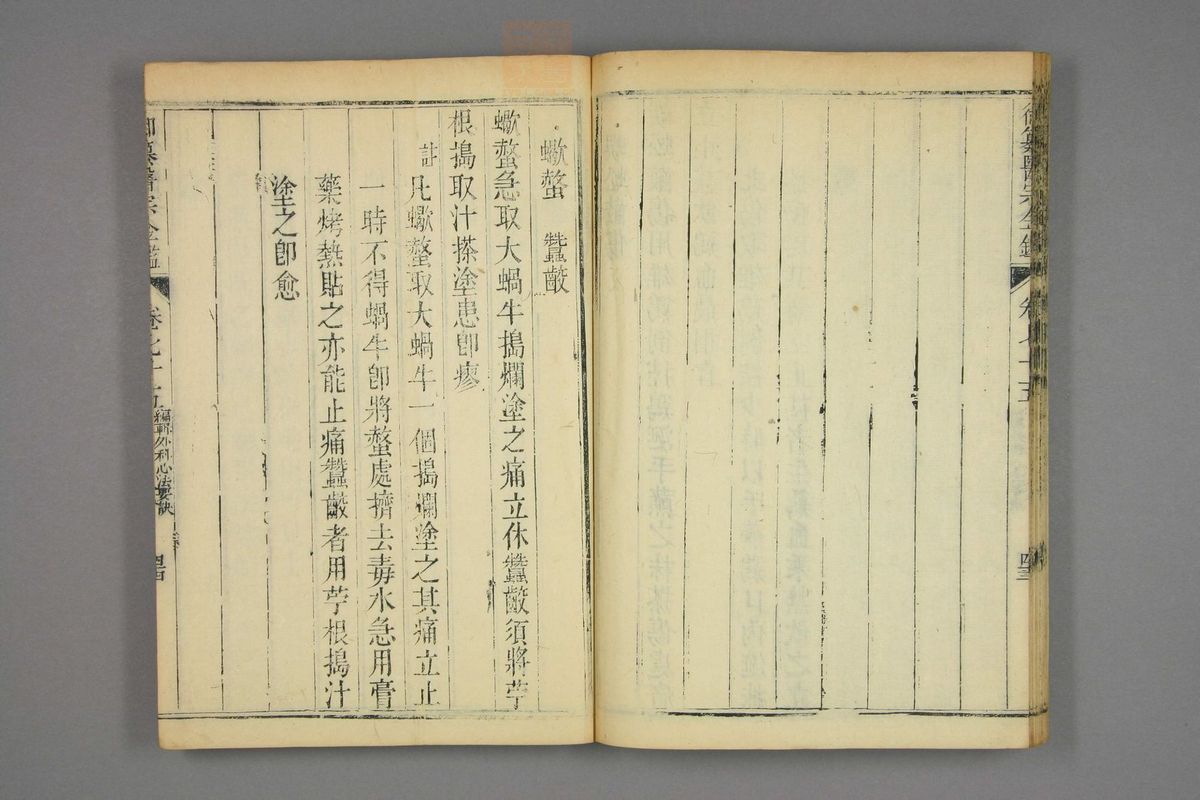 御纂醫宗金鑑 卷七十五
蠍螫 蠶齩
蠍螫急取大蝸牛搗爛塗之痛立休蠶齩須將苧
根搗取汁搽塗患卽瘳
註 凡蠍螫取大蝸牛一個搗爛塗之其痛立止
一時不得蝸牛卽將螫處擠去毒水急用膏
藥烤熱貼之亦能止痛蠶齩者用苧根搗汁
塗之卽愈
御纂醫宗金鑑 卷七十五 編輯外科心法要訣